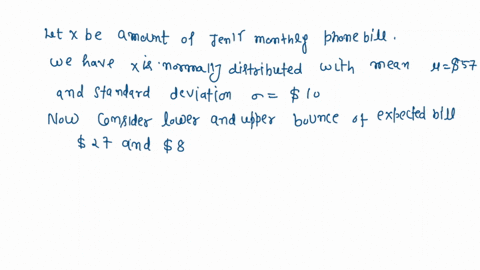 Let x be amount of Jen's monthly phone bill.
We have x is normally distributed with mean μ=$57
and standard deviation σ= $10
Now consider lower and upper bounce of expected bill
$27 and $8